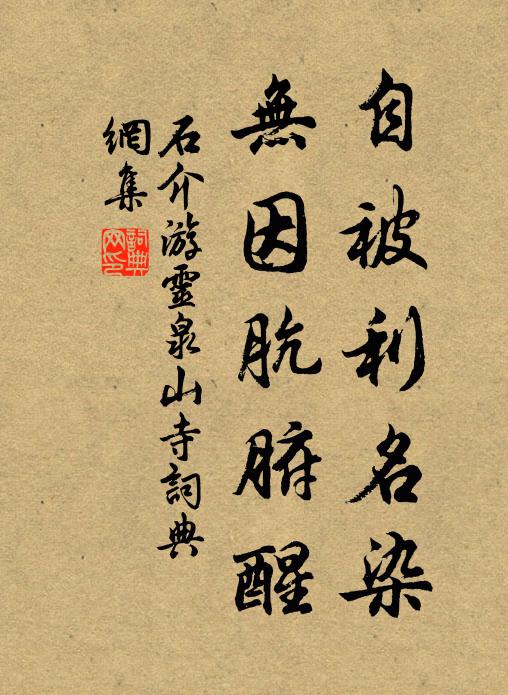 自被利名染
無因肮腑醒
石介游靈泉山寺詞典
網集
詞典
网印